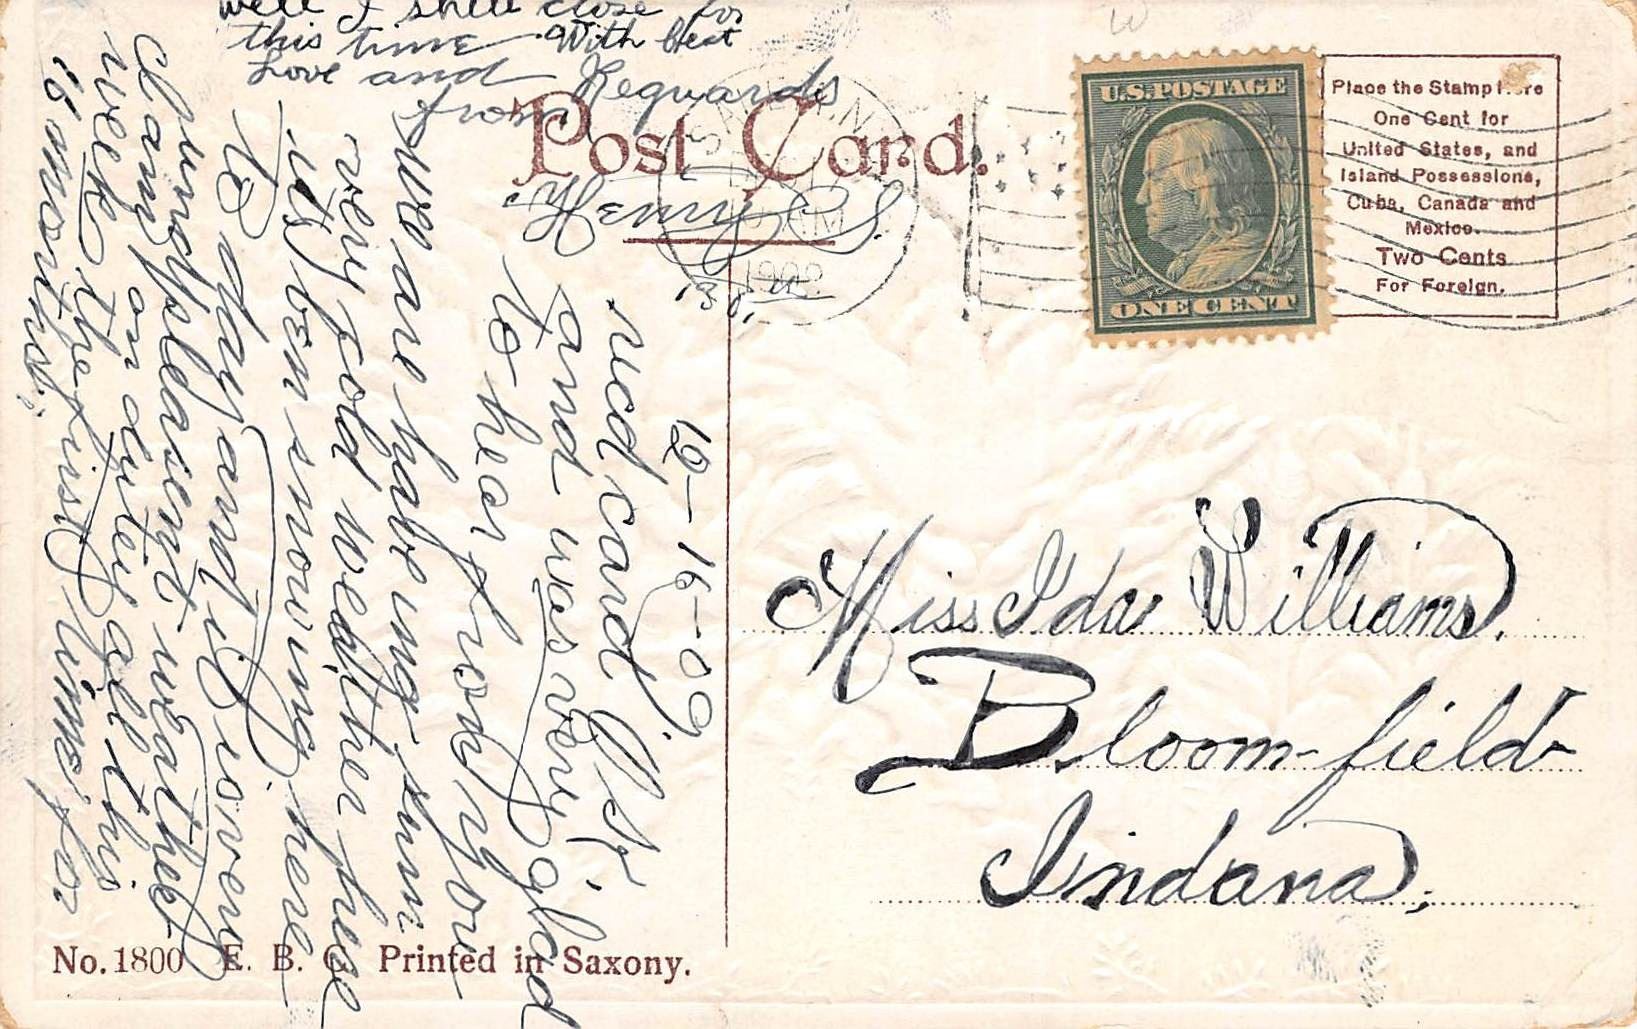 12-16-09
recd card
and was very glad
to hear from you
we are have ing sum
very cold weather here
its ben snowing here
to day and is very
unpleasient weather
on dutey all this
week the first time for
18 months.
well I shell close for
this time With best
Love and Reguards
from
Henry C. S.
Post Card.
SALEM, N.
1909
U.S. POSTAGE
ONE CENT
Place the Stamp Here
One Cent for
United States, and
Island Possessions,
Cuba, Canada and
Mexico.
Two Cents
For Foreign.
Miss Ida Williams.
Bloom-field
Indana;
No. 1800 E. B. C. Printed in Saxony.